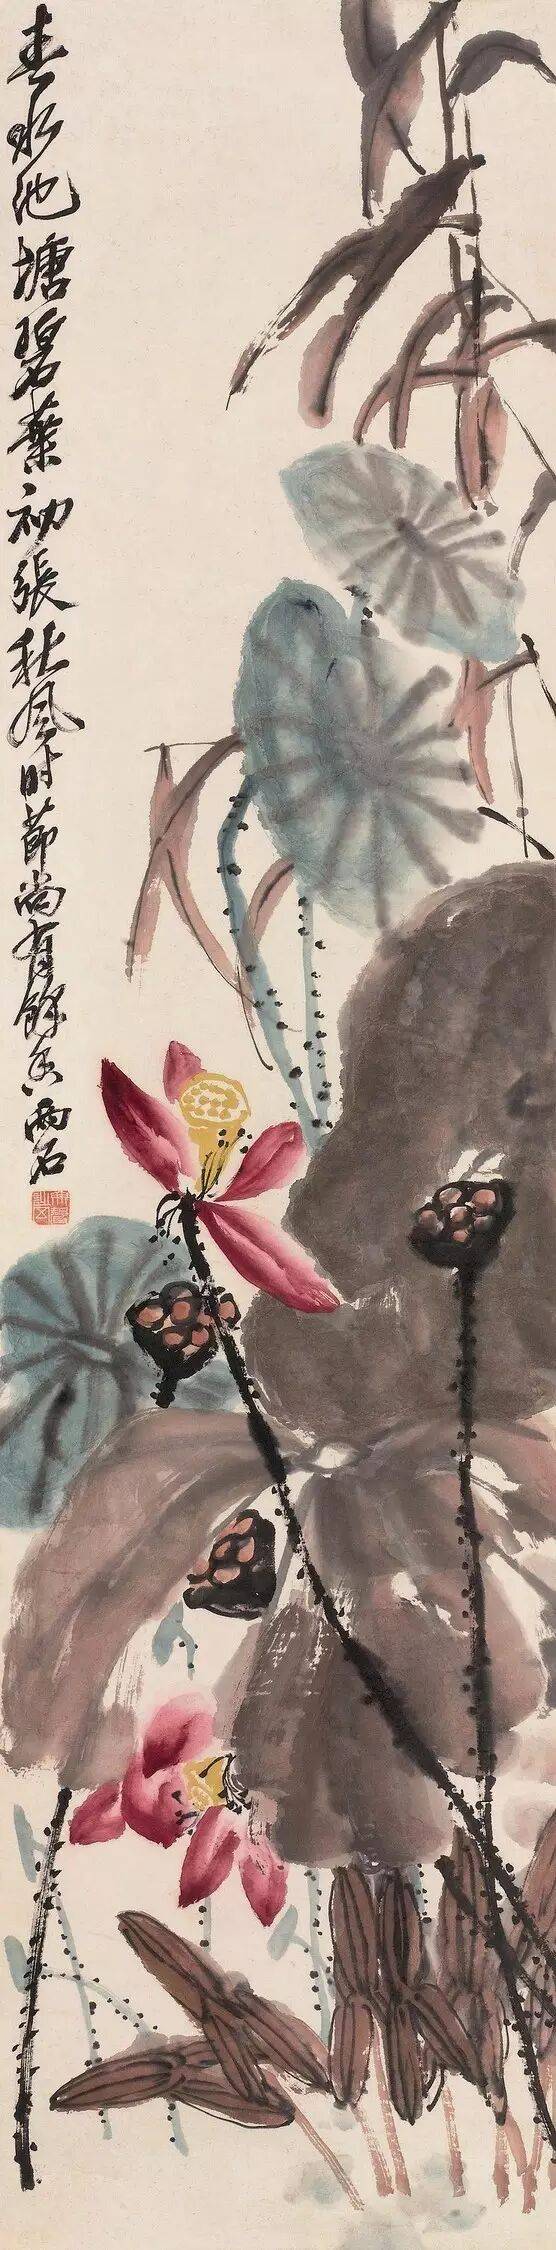 春水池塘碧葉初張秋風時節尚有餘香兩石